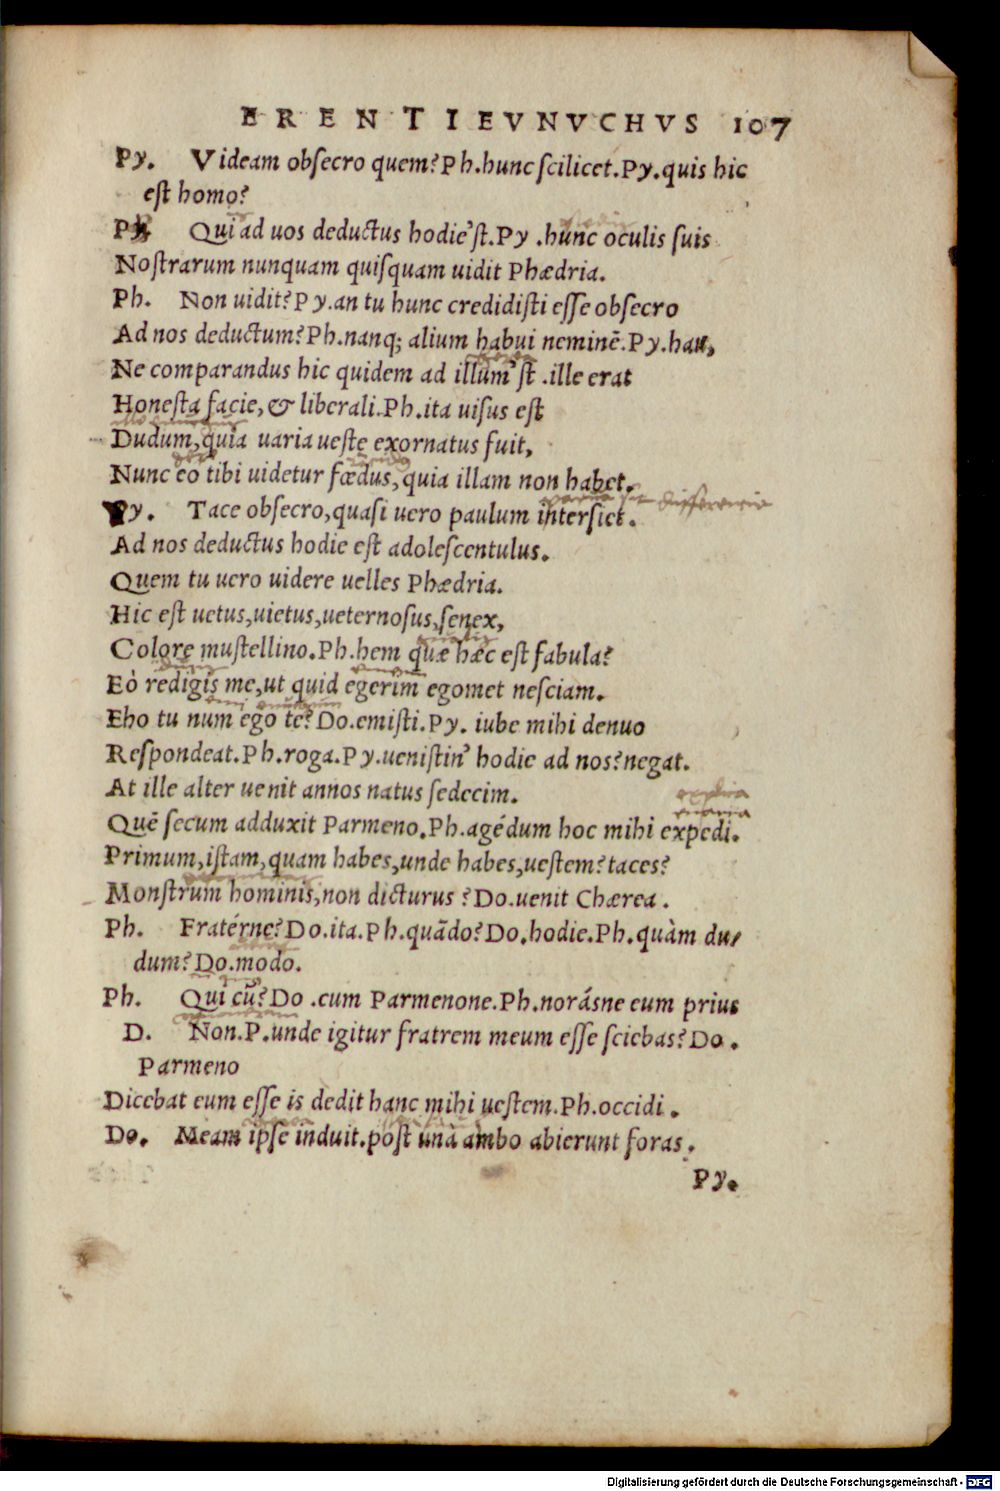 ERENTI EVNVCHVS 107
Py. Videam obsecro quem? Ph. hunc scilicet. Py. quis hic
est homo?
Ph. Qui ad uos deductus hodie'st. Py. hunc oculis suis
Nostrarum nunquam quisquam uidit Phædria.
Ph. Non uidit? Py. an tu hunc credidisti esse obsecro
Ad nos deductum? Ph. nanq; alium habui neminē. Py. hau,
Ne comparandus hic quidem ad illum'st. ille erat
Honesta facie, & liberali. Ph. ita uisus est
Dudum, quia uaria ueste exornatus fuit,
Nunc eo tibi uidetur fœdus, quia illam non habet.
Py. Tace obsecro, quasi uero paulum intersiet.
Ad nos deductus hodie est adolescentulus.
Quem tu uero uidere uelles Phædria.
Hic est uetus, uietus, ueternosus, senex,
Colore mustellino. Ph. hem quæ hæc est fabula?
Eò redigis me, ut quid egerim egomet nesciam.
Eho tu num ego te? Do. emisti. Py. iube mihi denuo
Respondeat. Ph. roga. Py. uenistin' hodie ad nos? negat.
At ille alter uenit annos natus sedecim.
Quē secum adduxit Parmeno. Ph. agédum hoc mihi expedi.
Primum, istam, quam habes, unde habes, uestem? taces?
Monstrum hominis, non dicturus? Do. uenit Chærea.
Ph. Fratérne? Do. ita. Ph. quādo? Do. hodie. Ph. quàm du/
dum? Do. modo.
Ph. Qui cū? Do. cum Parmenone. Ph. norásne eum prius
D. Non. P. unde igitur fratrem meum esse sciebas? Do.
Parmeno
Dicebat eum esse is dedit hanc mihi uestem. Ph. occidi.
Do. Meam ipse induit. post unà ambo abierunt foras.
Py.
Digitalisierung gefördert durch die Deutsche Forschungsgemeinschaft - DFG